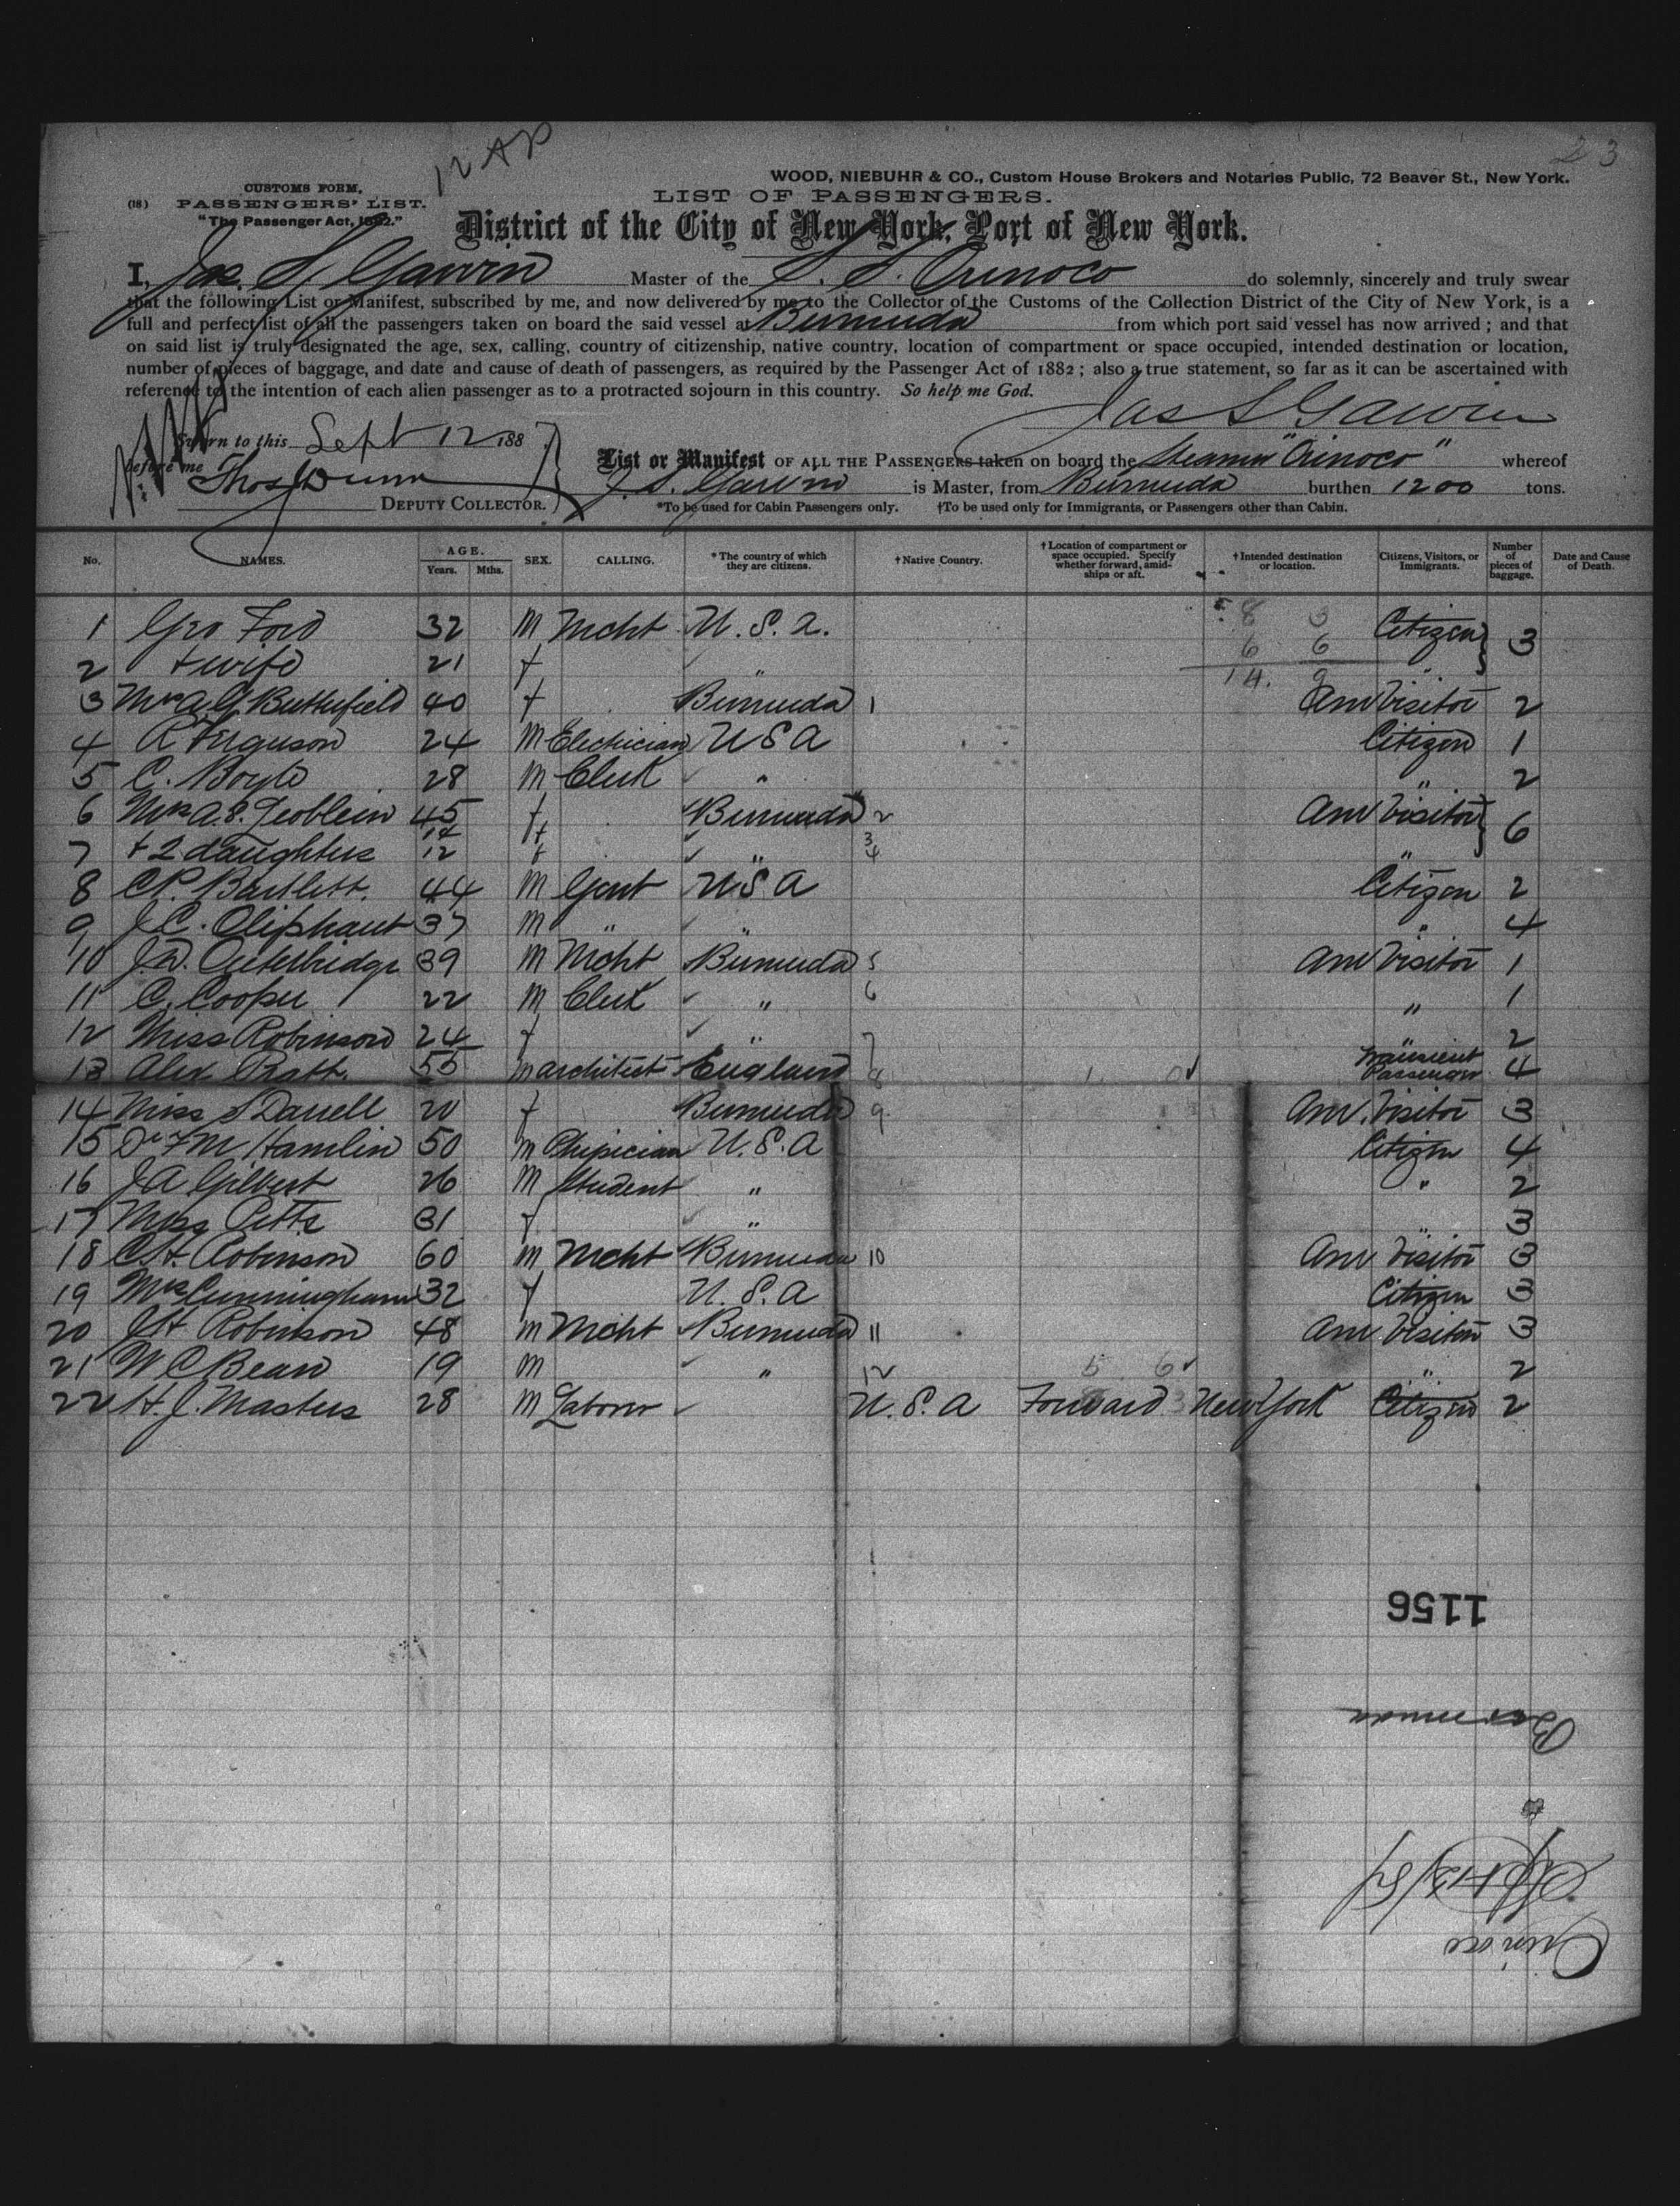 12 AP
23
WOOD, NIEBUHR & CO., Custom House Brokers and Notaries Public, 72 Beaver St., New York.
CUSTOMS FORM,
(18) PASSENGERS' LIST.
"The Passenger Act, 1882."
LIST OF PASSENGERS.
District of the City of New York, Port of New York.
I, Jas. S. Garvin Master of the S. S. Orinoco do solemnly, sincerely and truly swear
that the following List or Manifest, subscribed by me, and now delivered by me to the Collector of the Customs of the Collection District of the City of New York, is a
full and perfect list of all the passengers taken on board the said vessel at Bermuda from which port said vessel has now arrived; and that
on said list is truly designated the age, sex, calling, country of citizenship, native country, location of compartment or space occupied, intended destination or location,
number of pieces of baggage, and date and cause of death of passengers, as required by the Passenger Act of 1882; also a true statement, so far as it can be ascertained with
reference to the intention of each alien passenger as to a protracted sojourn in this country. So help me God.
Jas S Garvin
Sworn to this Sept 12 188
before me
Thos J Dunn
DEPUTY COLLECTOR.
List or Manifest OF ALL THE PASSENGERS taken on board the Steamer "Orinoco" whereof
J. S. Garvin is Master, from Bermuda burthen 1200 tons.
*To be used for Cabin Passengers only. †To be used only for Immigrants, or Passengers other than Cabin.
No. NAMES. AGE. Years. Mths. SEX. CALLING. *The country of which they are citizens. †Native Country. †Location of compartment or space occupied. Specify whether forward, amidships or aft. †Intended destination or location. Citizens, Visitors, or Immigrants. Number of pieces of baggage. Date and Cause of Death.
1 Geo Ford 32 M Mcht U. S. A. Citizen 3
2 + wife 21 f " "
3 Mrs A. G. Butterfield 40 f Bermuda 1 Am Visitor 2
4 R Ferguson 24 M Electrician U S A Citizen 1
5 C. Boyle 28 M Clerk " " 2
6 Mrs A. S. 45 f Bermuda 2 Am Visitor 6
7 + 2 daughters 14 12 f f " 3 4 "
8 C P. Bartlett. 44 M Gent U S A Citizen 2
9 J. C. Oliphant 37 M " " " 4
10 J. W. Outerbridge 39 M Mcht Bermuda 5 Am Visitor 1
11 C. Cooper 22 M Clerk " 6 " 1
12 Miss Robinson 24 f " 7 " 2
13 Alex. Pratt. 55 M architect England 8 Transient Passenger 4
14 Miss S Darrell 20 f Bermuda 9 Am. Visitor 3
15 Dr F M Hamlin 50 M Phisician U. S. A Citizen 4
16 J A Gilbert 26 M Student " " 2
17 Miss Pitts 31 f " " 3
18 C H. Robinson 60 M Mcht Bermuda 10 Am Visitor 3
19 Mrs Cunningham 32 f U. S. A Citizen 3
20 J H Robinson 48 M Mcht Bermuda 11 Am Visitor 3
21 W C Bean 19 M " 12 " 2
22 H. J. Masters 28 M Laborer U. S. A Forward New York Citizen 2
1156
Bermuda
Sept 12/87
Orinoco